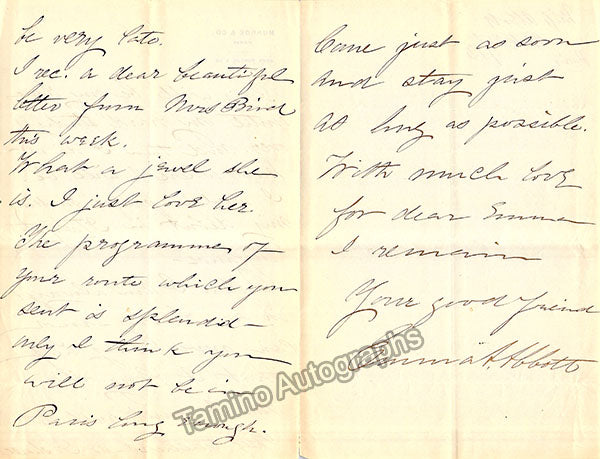 be very late.
I rec. a dear beautiful
letter from Mrs Bird
this week.
What a jewel she
is. I just love her.
The programme of
your route which you
sent is splendid –
only I think you
will not be in
Paris long enough.
Come just as soon
and stay just
as long as possible.
With much love
for dear Emma
I remain
Your good friend
Emma A. Abbott
MUNROE & CO.
Tamino Autographs